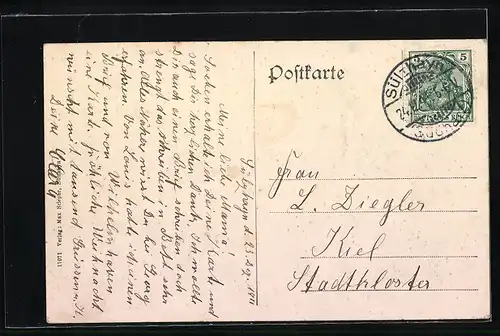 Postkarte
5
SÜLZHAYN
Sülzhayn d. 23. Dez. 1911
Meine liebe Mama!
Soeben erhalte ich Deine Karte und
sage Dir herzlichen Dank. Ich wollte
Dir auch einen Brief schreiben doch
strengt das schreiben im Bett sehr
an. Alles näher wirst Du bei Georg
erfahren. Von Louis habe ich einen
Brief und von Wilhelmshaven
eine Karte. Fröhliche Weihnacht
wünscht mit tausend Grüssen u. K.
Deine
Frau
L. Ziegler
Kiel
Stadtkloster